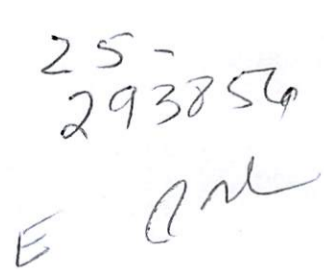 25-
293856
E